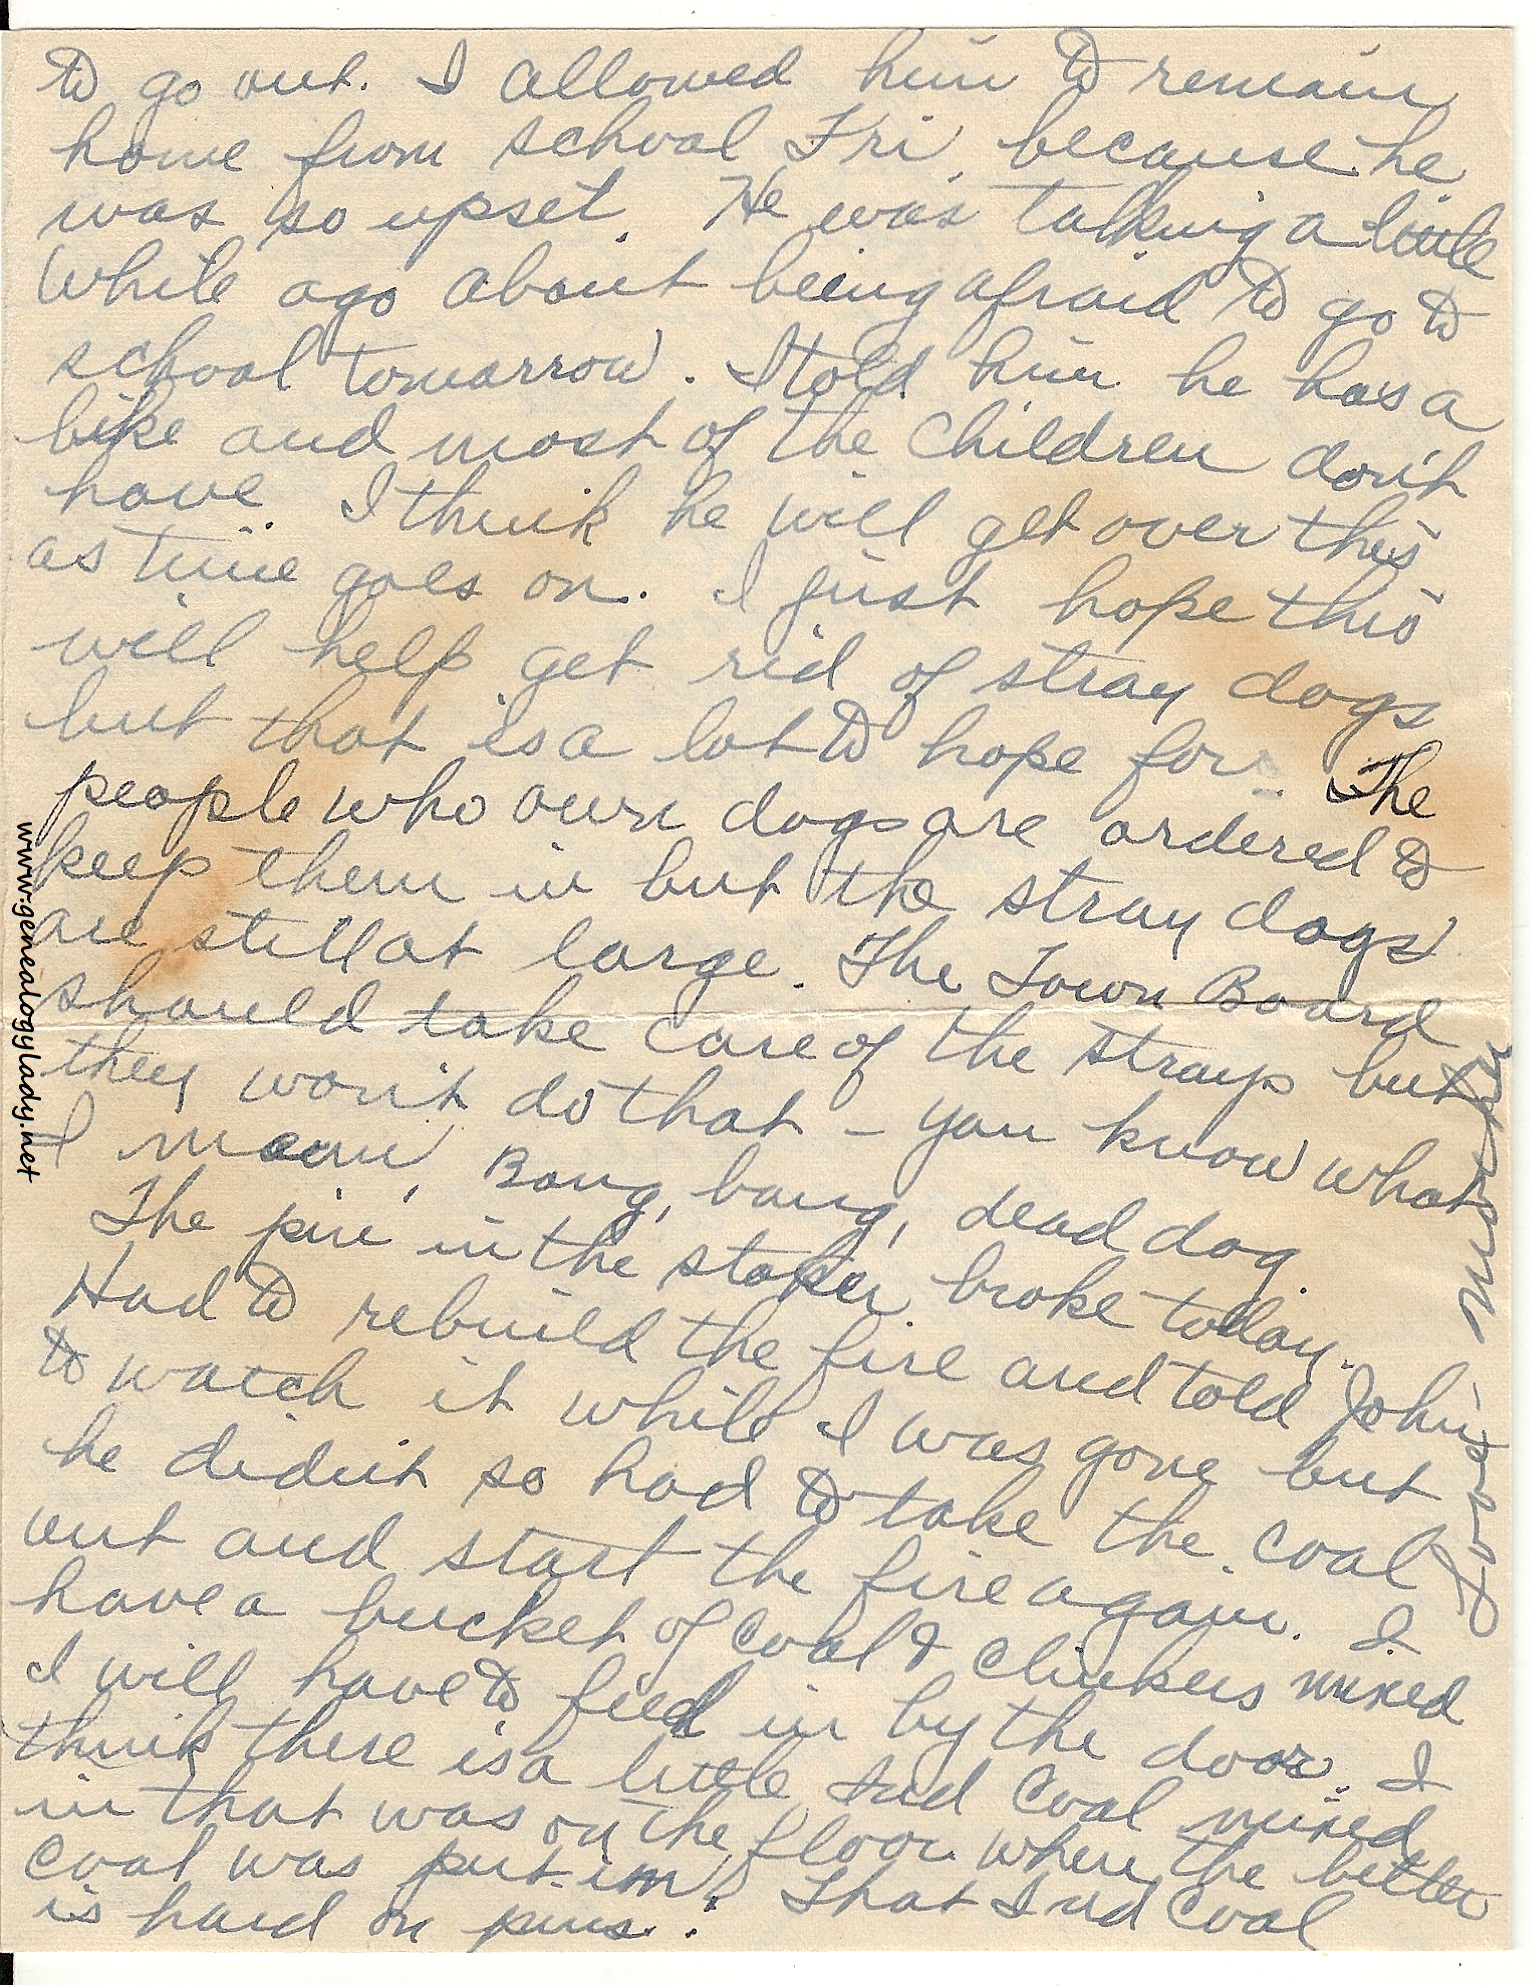 to go out. I allowed him to remain
home from school Fri. because he
was so upset. He was talking a little
while ago about being afraid to go to
school tomorrow. I told him he has a
bike and most of the children don't
have. I think he will get over this
as time goes on. I just hope this
will help get rid of stray dogs
but that is a lot to hope for. The
people who own dogs are ordered to
keep them in but the stray dogs
are still at large. The Town Board
should take care of the strays but
they won't do that – you know what
I mean, Bang, bang, dead dog.
The pin in the stoker broke today.
Had to rebuild the fire and told John
to watch it while I was gone but
he didn't so had to take the coal
out and start the fire again. I
have a bucket of coal & clinkers mixed
I will have to feed in by the door. I
think there is a little Ind coal mixed
in that was on the floor when the better
coal was put in. That Ind Coal
is hard on pins.
Love Mother
www.genealogylady.net